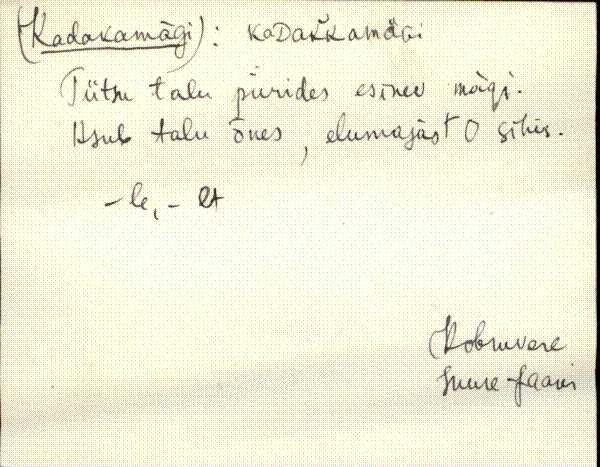 (Kadakamägi): KaDakkamäGi
Tütsu talu piirides esinev mägi.
Asub talu õues, elumajast O sihis.
-le, - lt
Kobruvere
Suure-Jaani